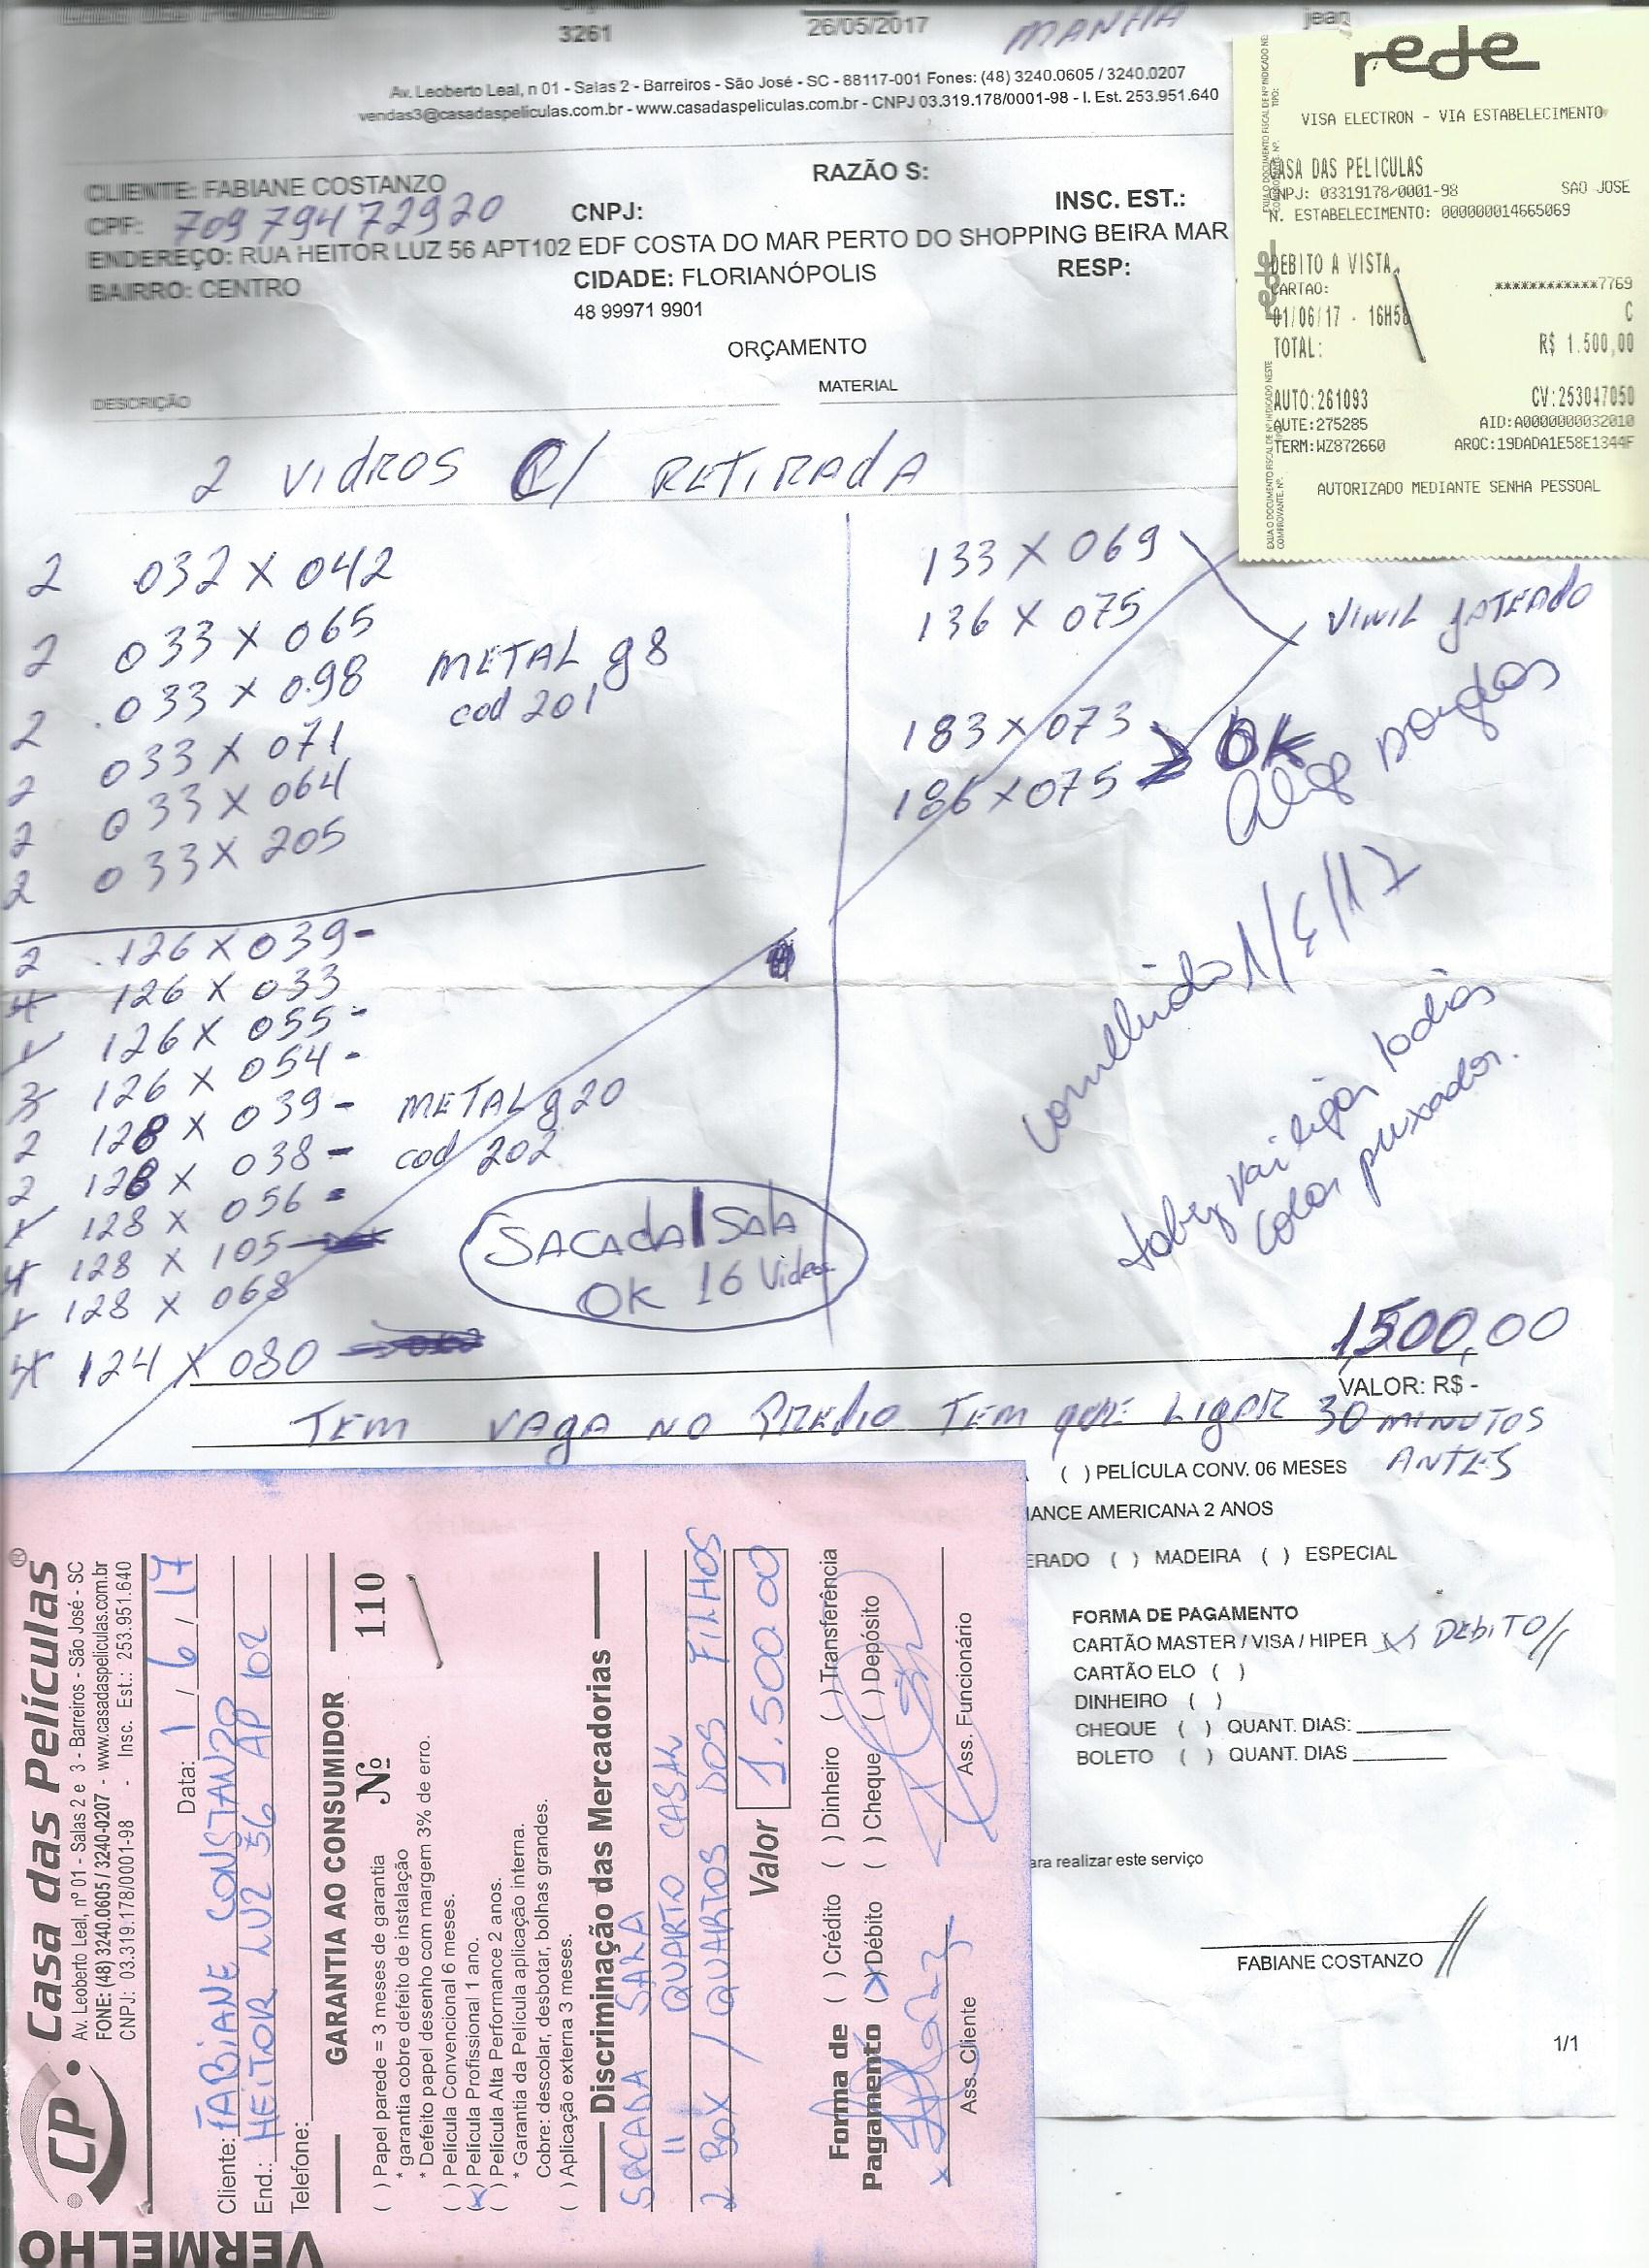 3261
26/05/2017
MANHÃ
jean
Av. Leoberto Leal, n 01 - Salas 2 - Barreiros - São José - SC - 88117-001 Fones: (48) 3240.0605 / 3240.0207
vendas3@casadaspeliculas.com.br - www.casadaspeliculas.com.br - CNPJ 03.319.178/0001-98 - I. Est. 253.951.640
RAZÃO S:
CLIENTE: FABIANE COSTANZO
CPF: 70979472920
CNPJ:
INSC. EST.:
ENDEREÇO: RUA HEITOR LUZ 56 APT102 EDF COSTA DO MAR PERTO DO SHOPPING BEIRA MAR
BAIRRO: CENTRO
CIDADE: FLORIANÓPOLIS
RESP:
48 99971 9901
ORÇAMENTO
DESCRIÇÃO
MATERIAL
2 VIDROS C/ RETIRADA
2 032 X 042
2 033 X 065
2 033 X 098
2 033 X 071
2 033 X 064
2 033 X 205
METAL g8
cod 201
2 126 X 039-
126 X 033
126 X 055-
3 126 X 054-
2 128 X 039-
2 128 X 038-
128 X 056-
128 X 105
128 X 068
124 X 080
METAL g20
cod 202
SACADA/SALA
OK 16 Vidros
133 X 069
136 X 075
183 X 073
186 X 075
VINIL JATEADO
OK
1/6/17
vai ligar
colar puxador.
1,500,00
VALOR: R$ -
TEM VAGA NO PREDIO TEM QUE LIGAR 30 MINUTOS
ANTES
( ) PELÍCULA CONV. 06 MESES
MANCE AMERICANA 2 ANOS
ERADO ( ) MADEIRA ( ) ESPECIAL
FORMA DE PAGAMENTO
CARTÃO MASTER / VISA / HIPER (X) DEBITO//
CARTÃO ELO ( )
DINHEIRO ( )
CHEQUE ( ) QUANT. DIAS:
BOLETO ( ) QUANT. DIAS
ara realizar este serviço
FABIANE COSTANZO
1/1
rede
VISA ELECTRON - VIA ESTABELECIMENTO
CASA DAS PELICULAS
CNPJ: 03319178/0001-98 SAO JOSE
N. ESTABELECIMENTO: 000000014665069
DEBITO A VISTA
CARTAO: ************7769
01/06/17 - 16H58 C
TOTAL: R$ 1.500,00
AUTO:261093 CV:253047050
AUTE:275285 AID:A0000000032010
TERM:WZ872660 ARQC:19DADA1E58E1344F
AUTORIZADO MEDIANTE SENHA PESSOAL
VERMELHO
CP Casa das Películas®
Av. Leoberto Leal, nº 01 - Salas 2 e 3 - Barreiros - São José - SC
FONE: (48) 3240.0605 / 3240-0207 - www.casadaspeliculas.com.br
CNPJ: 03.319.178/0001-98 - Insc. Est.: 253.951.640
Data: 1/6/17
Cliente: FABIANE CONSTANZO
End.: HEITOR LUZ 56 AP 102
Telefone:
GARANTIA AO CONSUMIDOR
Nº 110
( ) Papel parede = 3 meses de garantia
* garantia cobre defeito de instalação
* Defeito papel desenho com margem 3% de erro.
( ) Película Convencional 6 meses.
(x) Película Profissional 1 ano.
( ) Película Alta Performance 2 anos.
* Garantia da Película aplicação interna.
Cobre: descolar, desbotar, bolhas grandes.
( ) Aplicação externa 3 meses.
Discriminação das Mercadorias
SACADA SALA
" QUARTO CASAL
2 BOX / QUARTOS DOS FILHOS
Valor 1.500.00
Forma de Pagamento
( ) Crédito ( ) Dinheiro ( ) Transferência
(X) Débito ( ) Cheque ( ) Depósito
Ass. Cliente
Ass. Funcionário